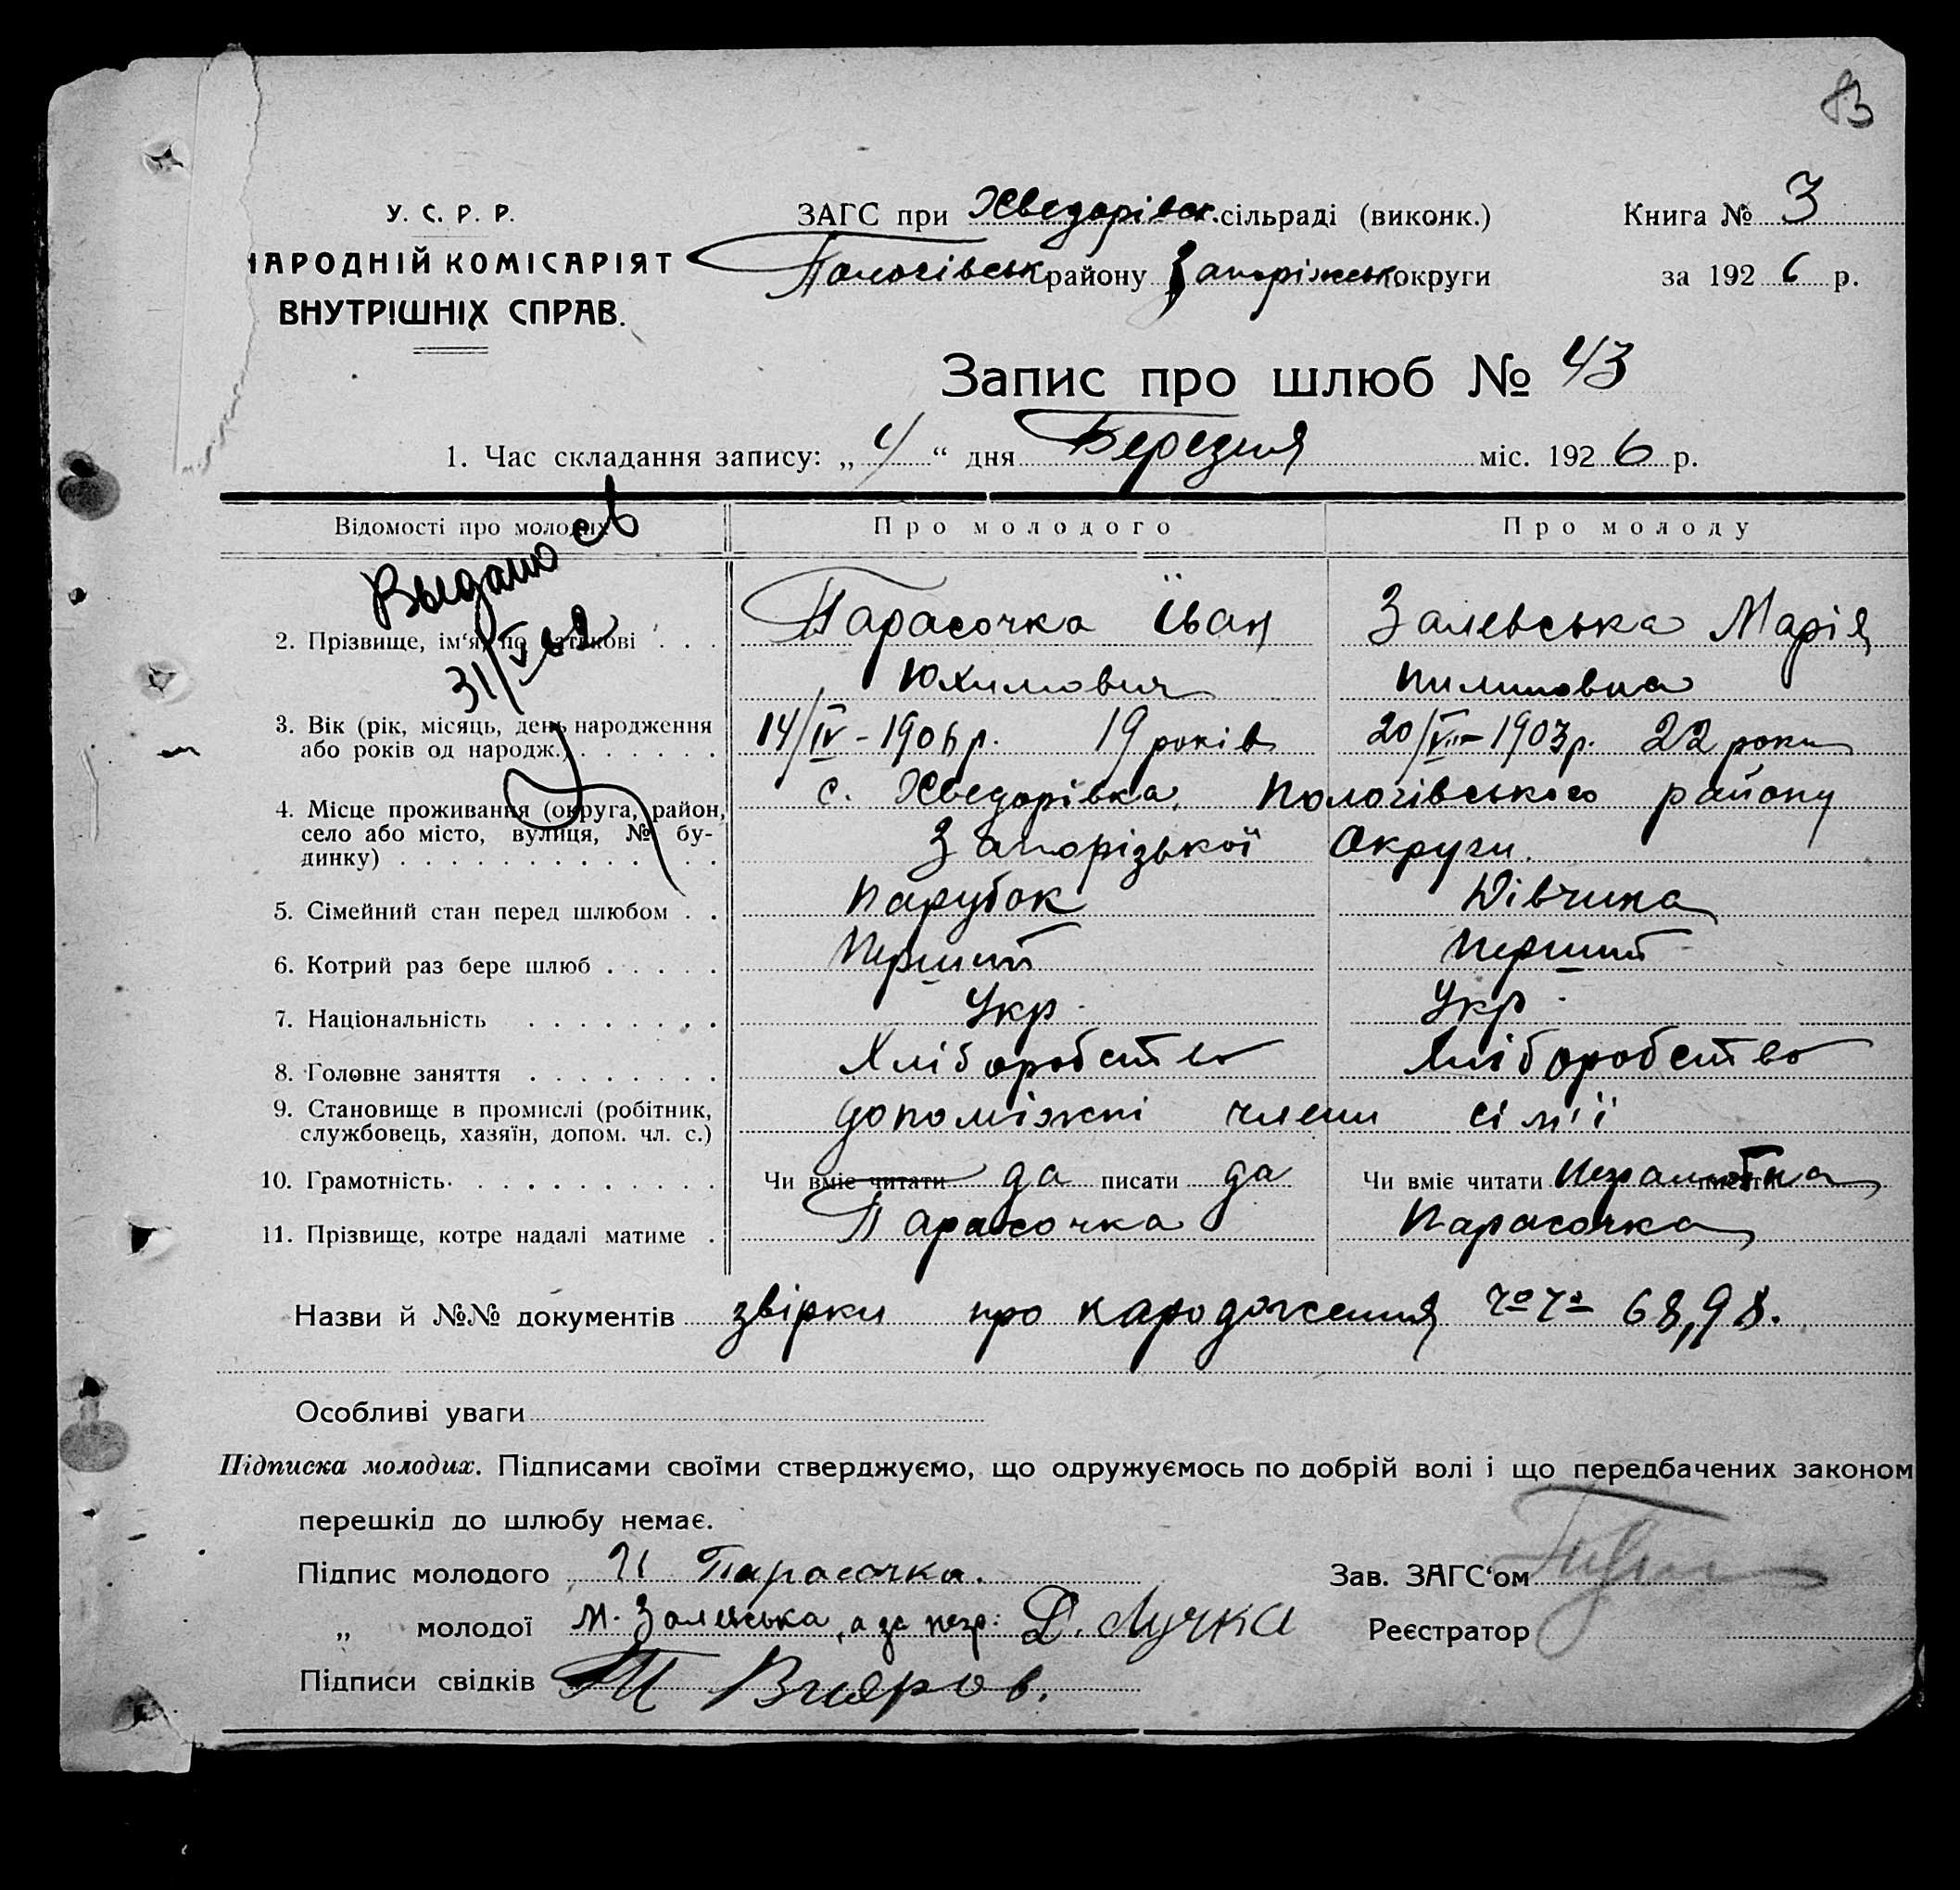 83
У. С. Р. Р.
НАРОДНІЙ КОМІСАРІЯТ
ВНУТРІШНІХ СПРАВ.
ЗАГС при Хведорівск. сільраді (виконк.)
Пологівськ району Запоріжськ округи
Книга № 3
за 1926 р.
Запис про шлюб № 43
1. Час складання запису: „4“ дня Березня міс. 1926 р.
Відомості про молодих
Про молодого
Про молоду
Выдано св
31/V
2. Прізвище, ім'я, по батькові . . .
Парасочка Їван
Юхимович
Залевська Марія
Пилиповна
3. Вік (рік, місяць, день народження
або років од народж.) . . . . . .
14/IV – 1906 р. 19 років
20/VIII – 1903 р. 22 роки
4. Місце проживання (округа, район,
село або місто, вулиця, № бу-
динку) . . . . . . . . . . . .
с. Хведорівка, Пологівського району
Запорізької Округи.
5. Сімейний стан перед шлюбом . .
Парубок
Дівчина
6. Котрий раз бере шлюб . . . . .
Перший
Перший
7. Національність . . . . . . . .
Укр.
Укр.
8. Головне заняття . . . . . . . .
Хліборобство
Хліборобство
9. Становище в промислі (робітник,
службовець, хазяїн, допом. чл. с.)
допоміжні члени сім'ї
10. Грамотність . . . . . . . . . .
Чи вміє читати да писати да
Чи вміє читати Неграмотна писати
11. Прізвище, котре надалі матиме .
Парасочка
Парасочка
Назви й №№ документів звірки про народження 68, 98.
Особливі уваги
Підписка молодих. Підписами своїми стверджуємо, що одружуємось по добрій волі і що передбачених законом
перешкід до шлюбу немає.
Підпис молодого И Парасочка.
Зав. ЗАГС‘ом
„ молодої М. Залевська, а за негр: Д. Лучка
Реєстратор
Підписи свідків